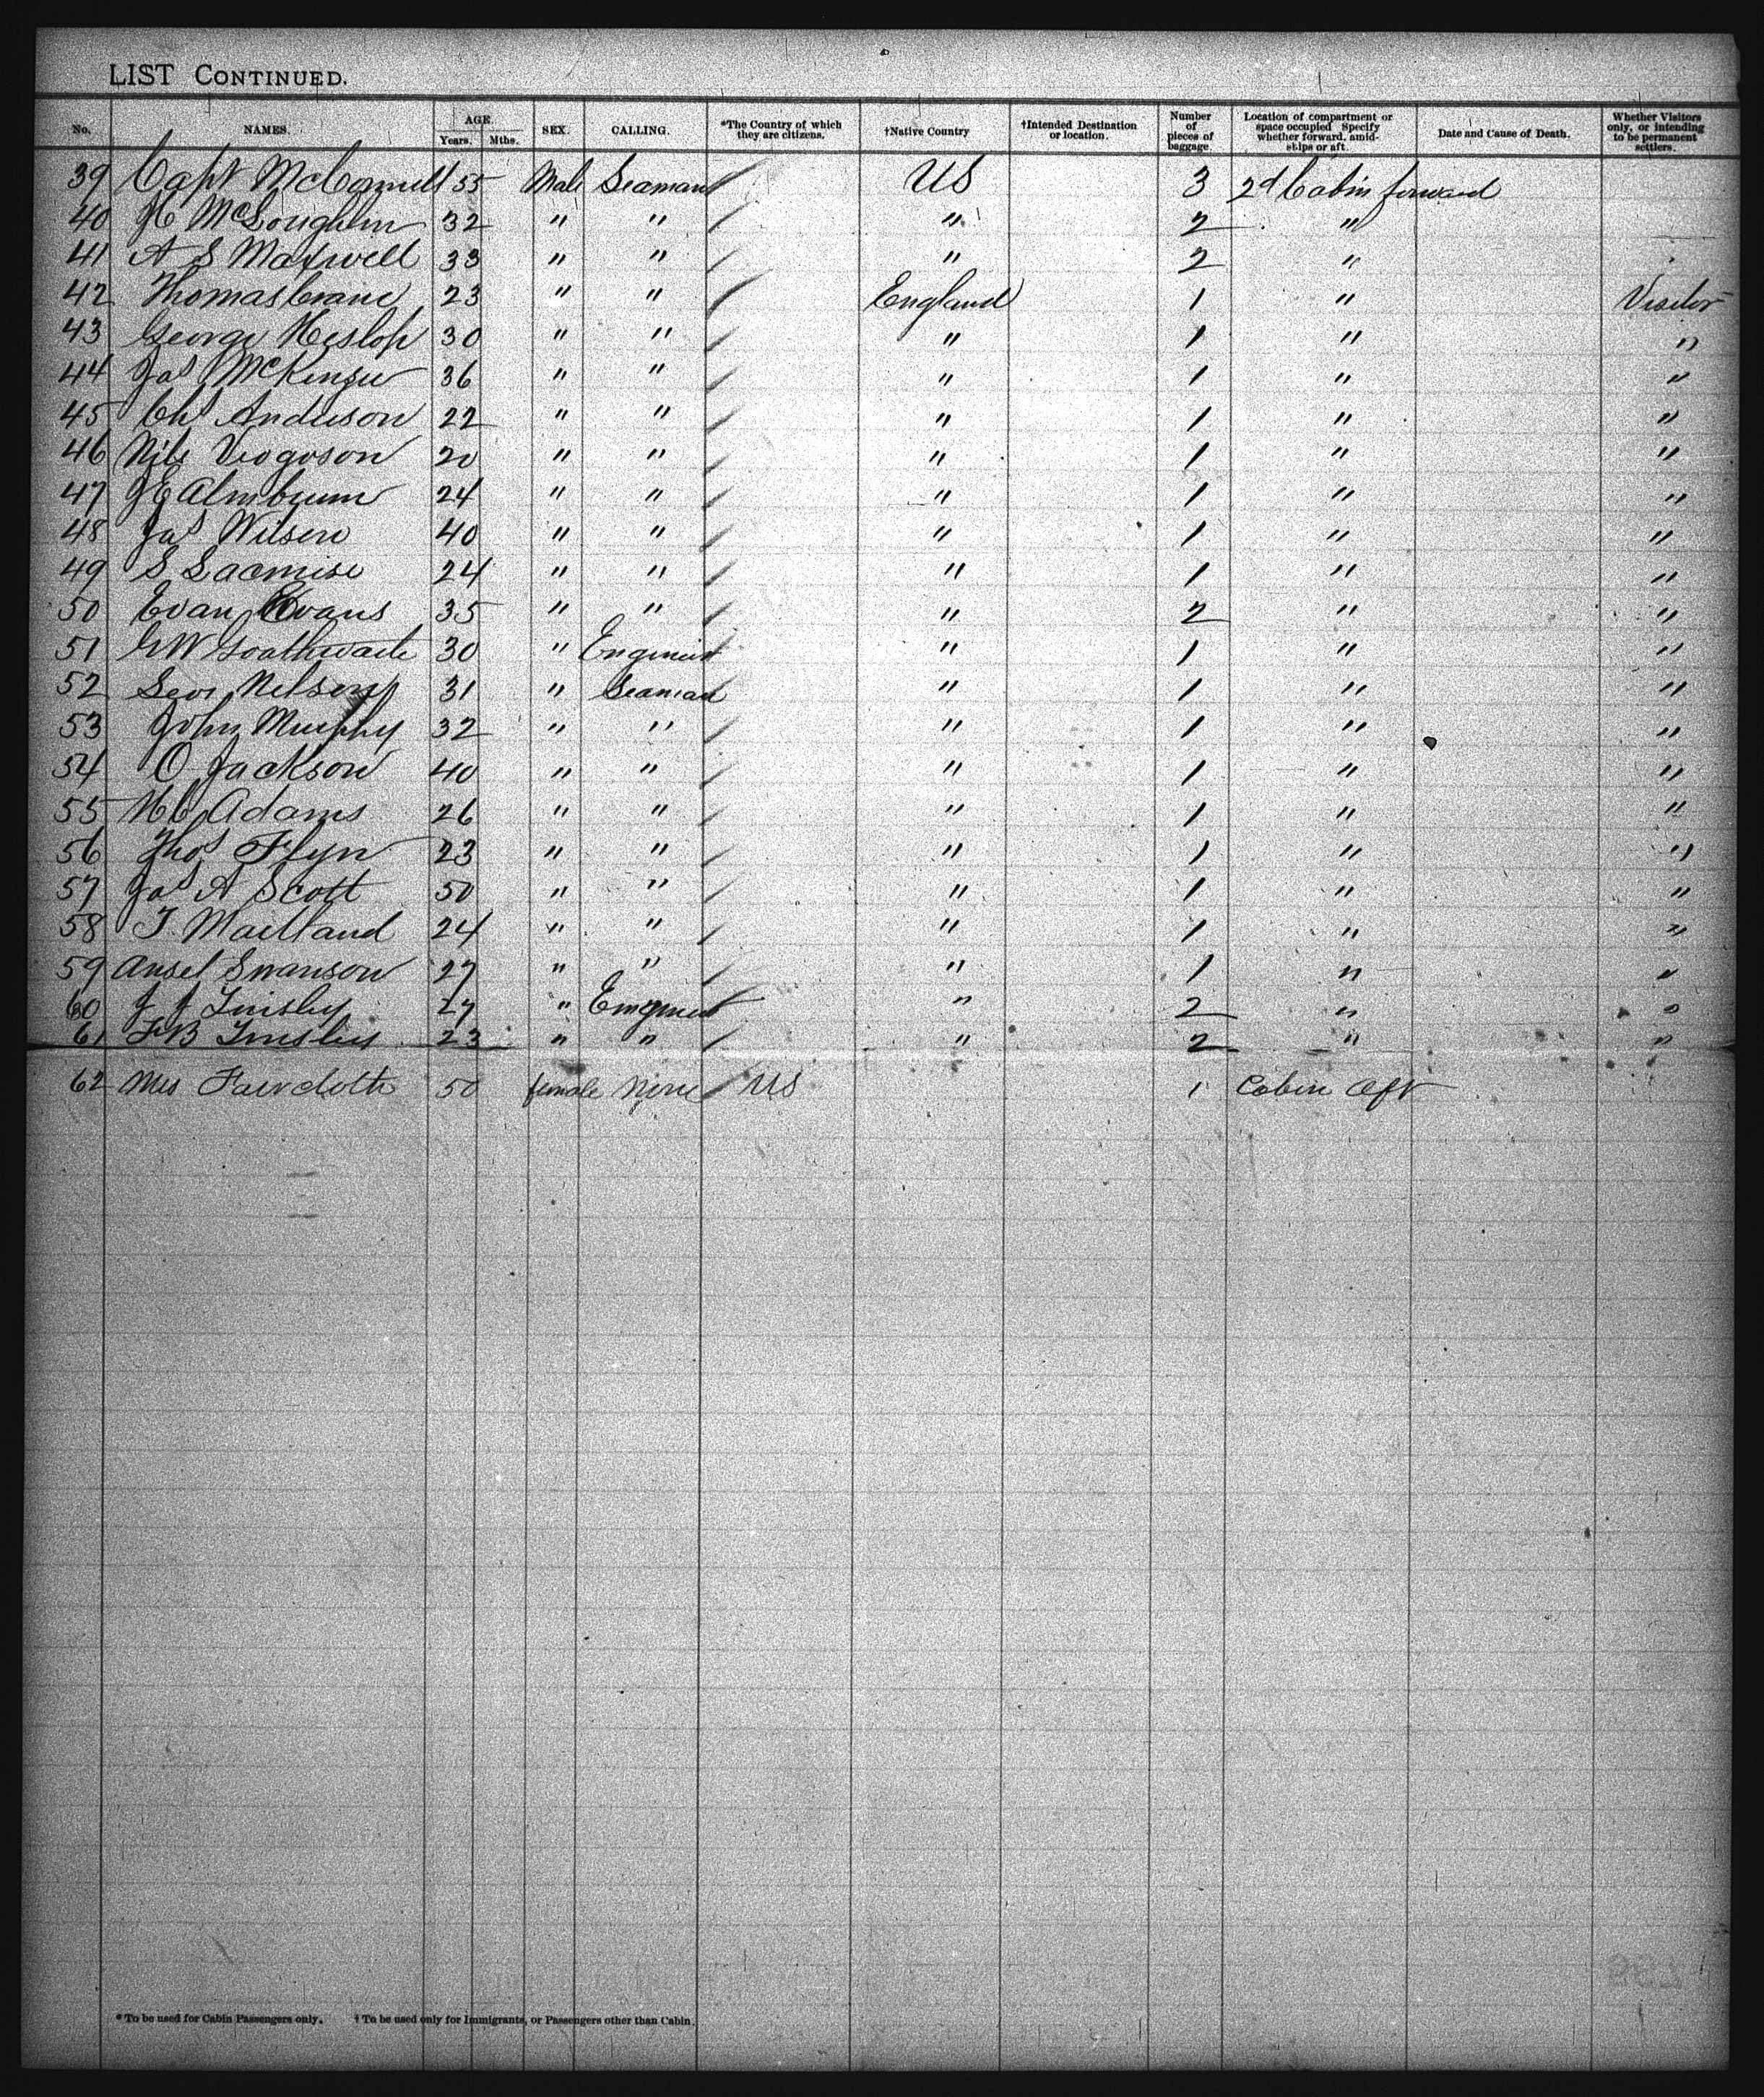 LIST CONTINUED.
No. NAMES. AGE. Years. Mths. SEX. CALLING. *The Country of which they are citizens. †Native Country †Intended Destination or location. Number of pieces of baggage. Location of compartment or space occupied Specify whether forward, amid-ships or aft. Date and Cause of Death. Whether Visitors only, or intending to be permanent settlers.
39 Capt McConnell 55 Male Seaman US 3 2d Cabin forward
40 McLoughlin 32 " " " 2 "
41 A S Maxwell 33 " " " 2 "
42 Thomas Crane 23 " " England 1 " Visitor
43 George Heslop 30 " " " 1 " "
44 Jas McKenzie 36 " " " 1 " "
45 Chs Anderson 22 " " " 1 " "
46 Nils 20 " " " 1 " "
47 24 " " " 1 " "
48 Jas Wilson 40 " " " 1 " "
49 S 24 " " " 1 " "
50 Evan Evans 35 " " " 2 " "
51 30 " Engineer " 1 " "
52 Nelson 31 " Seaman " 1 " "
53 John Murphy 32 " " " 1 " "
54 O Jackson 40 " " " 1 " "
55 Adams 26 " " " 1 " "
56 Thos Flyn 23 " " " 1 " "
57 Jas A Scott 50 " " " 1 " "
58 T. Maitland 24 " " " 1 " "
59 Ansel Swanson 27 " " " 1 " "
60 J J Tinsley 27 " Engineer " 2 " "
61 F B Tinsley 23 " " " 2 " "
62 Mrs Faircloth 50 female None US 1 Cabin Aft
*To be used for Cabin Passengers only. †To be used only for Immigrants, or Passengers other than Cabin.